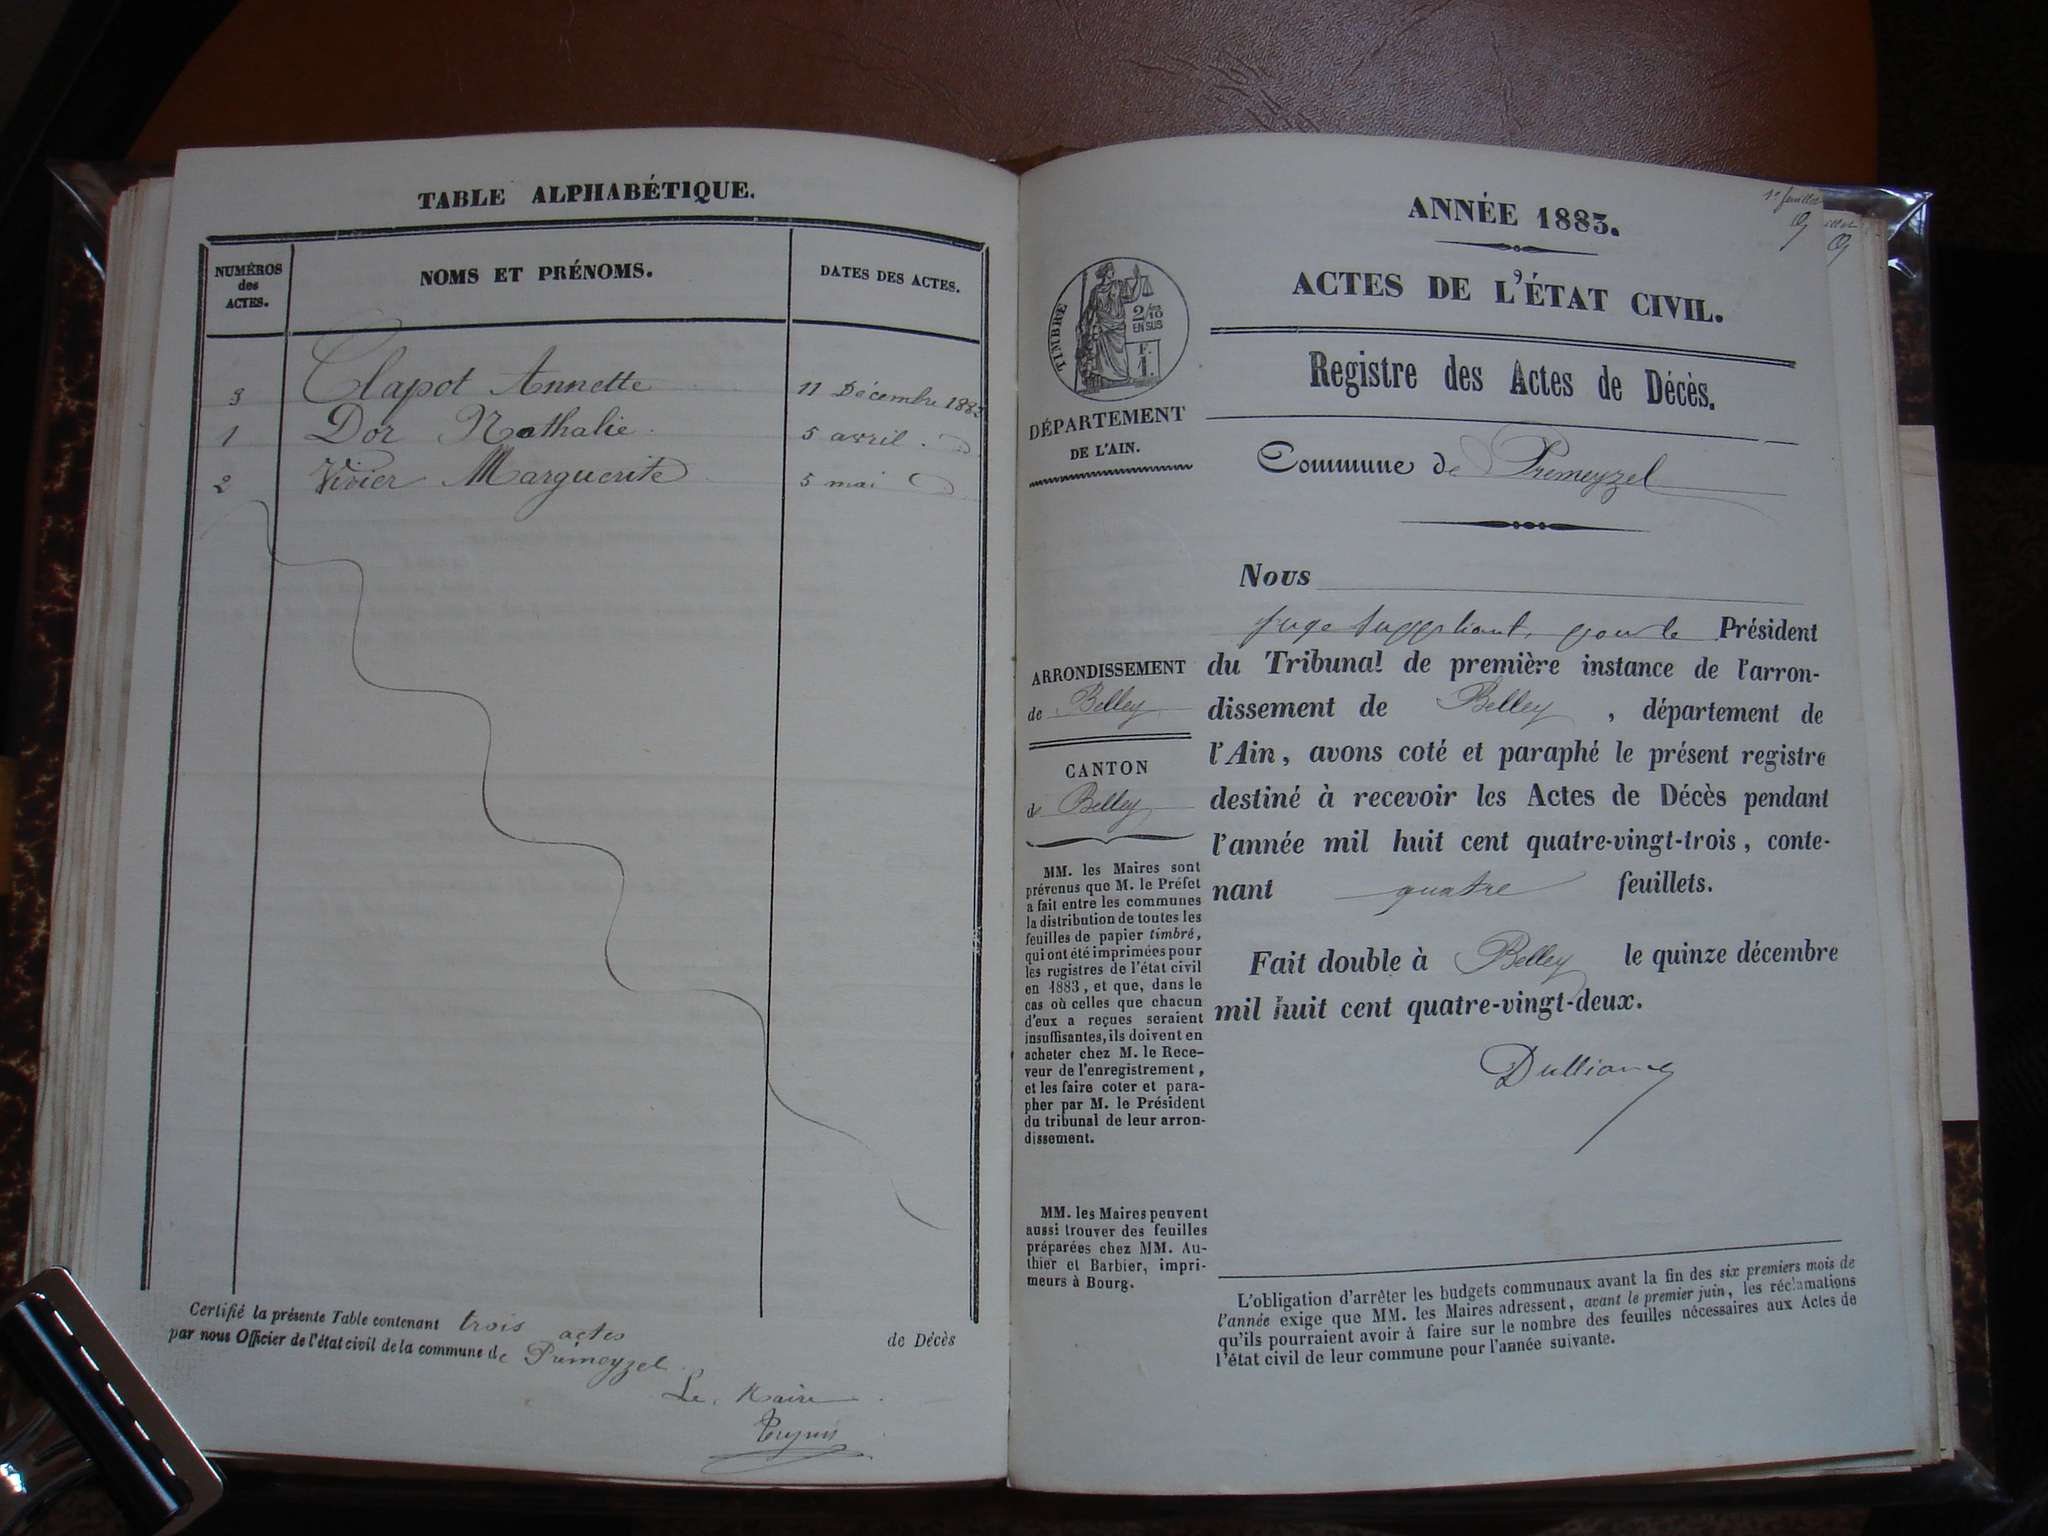 TABLE ALPHABÉTIQUE.
NUMÉROS
des
ACTES.
NOMS ET PRÉNOMS.
DATES DES ACTES.
3 Clapot Annette 11 Décembre 1883
1 Dor Nathalie 5 avril
2 Vivier Marguerite 5 mai
Certifié la présente Table contenant trois actes de Décès
par nous Officier de l'état civil de la commune de Prémeyzel
Le Maire
1er feuillet
ANNÉE 1883.
ACTES DE L'ÉTAT CIVIL.
Registre des Actes de Décès.
Commune de Prémeyzel
TIMBRE
2/10
EN SUS
F.
1.
DÉPARTEMENT
DE L'AIN.
ARRONDISSEMENT
de Belley
CANTON
de Belley
MM. les Maires sont
prévenus que M. le Préfet
a fait entre les communes
la distribution de toutes les
feuilles de papier timbré,
qui ont été imprimées pour
les registres de l'état civil
en 1883, et que, dans le
cas où celles que chacun
d'eux a reçues seraient
insuffisantes, ils doivent en
acheter chez M. le Rece-
veur de l'enregistrement,
et les faire coter et para-
pher par M. le Président
du tribunal de leur arron-
dissement.
MM. les Maires peuvent
aussi trouver des feuilles
préparées chez MM. Au-
thier et Barbier, impri-
meurs à Bourg.
Nous
juge suppléant, pour le Président
du Tribunal de première instance de l'arron-
dissement de Belley, département de
l'Ain, avons coté et paraphé le présent registre
destiné à recevoir les Actes de Décès pendant
l'année mil huit cent quatre-vingt-trois, conte-
nant quatre feuillets.
Fait double à Belley le quinze décembre
mil huit cent quatre-vingt-deux.
L'obligation d'arrêter les budgets communaux avant la fin des six premiers mois de
l'année exige que MM. les Maires adressent, avant le premier juin, les réclamations
qu'ils pourraient avoir à faire sur le nombre des feuilles nécessaires aux Actes de
l'état civil de leur commune pour l'année suivante.